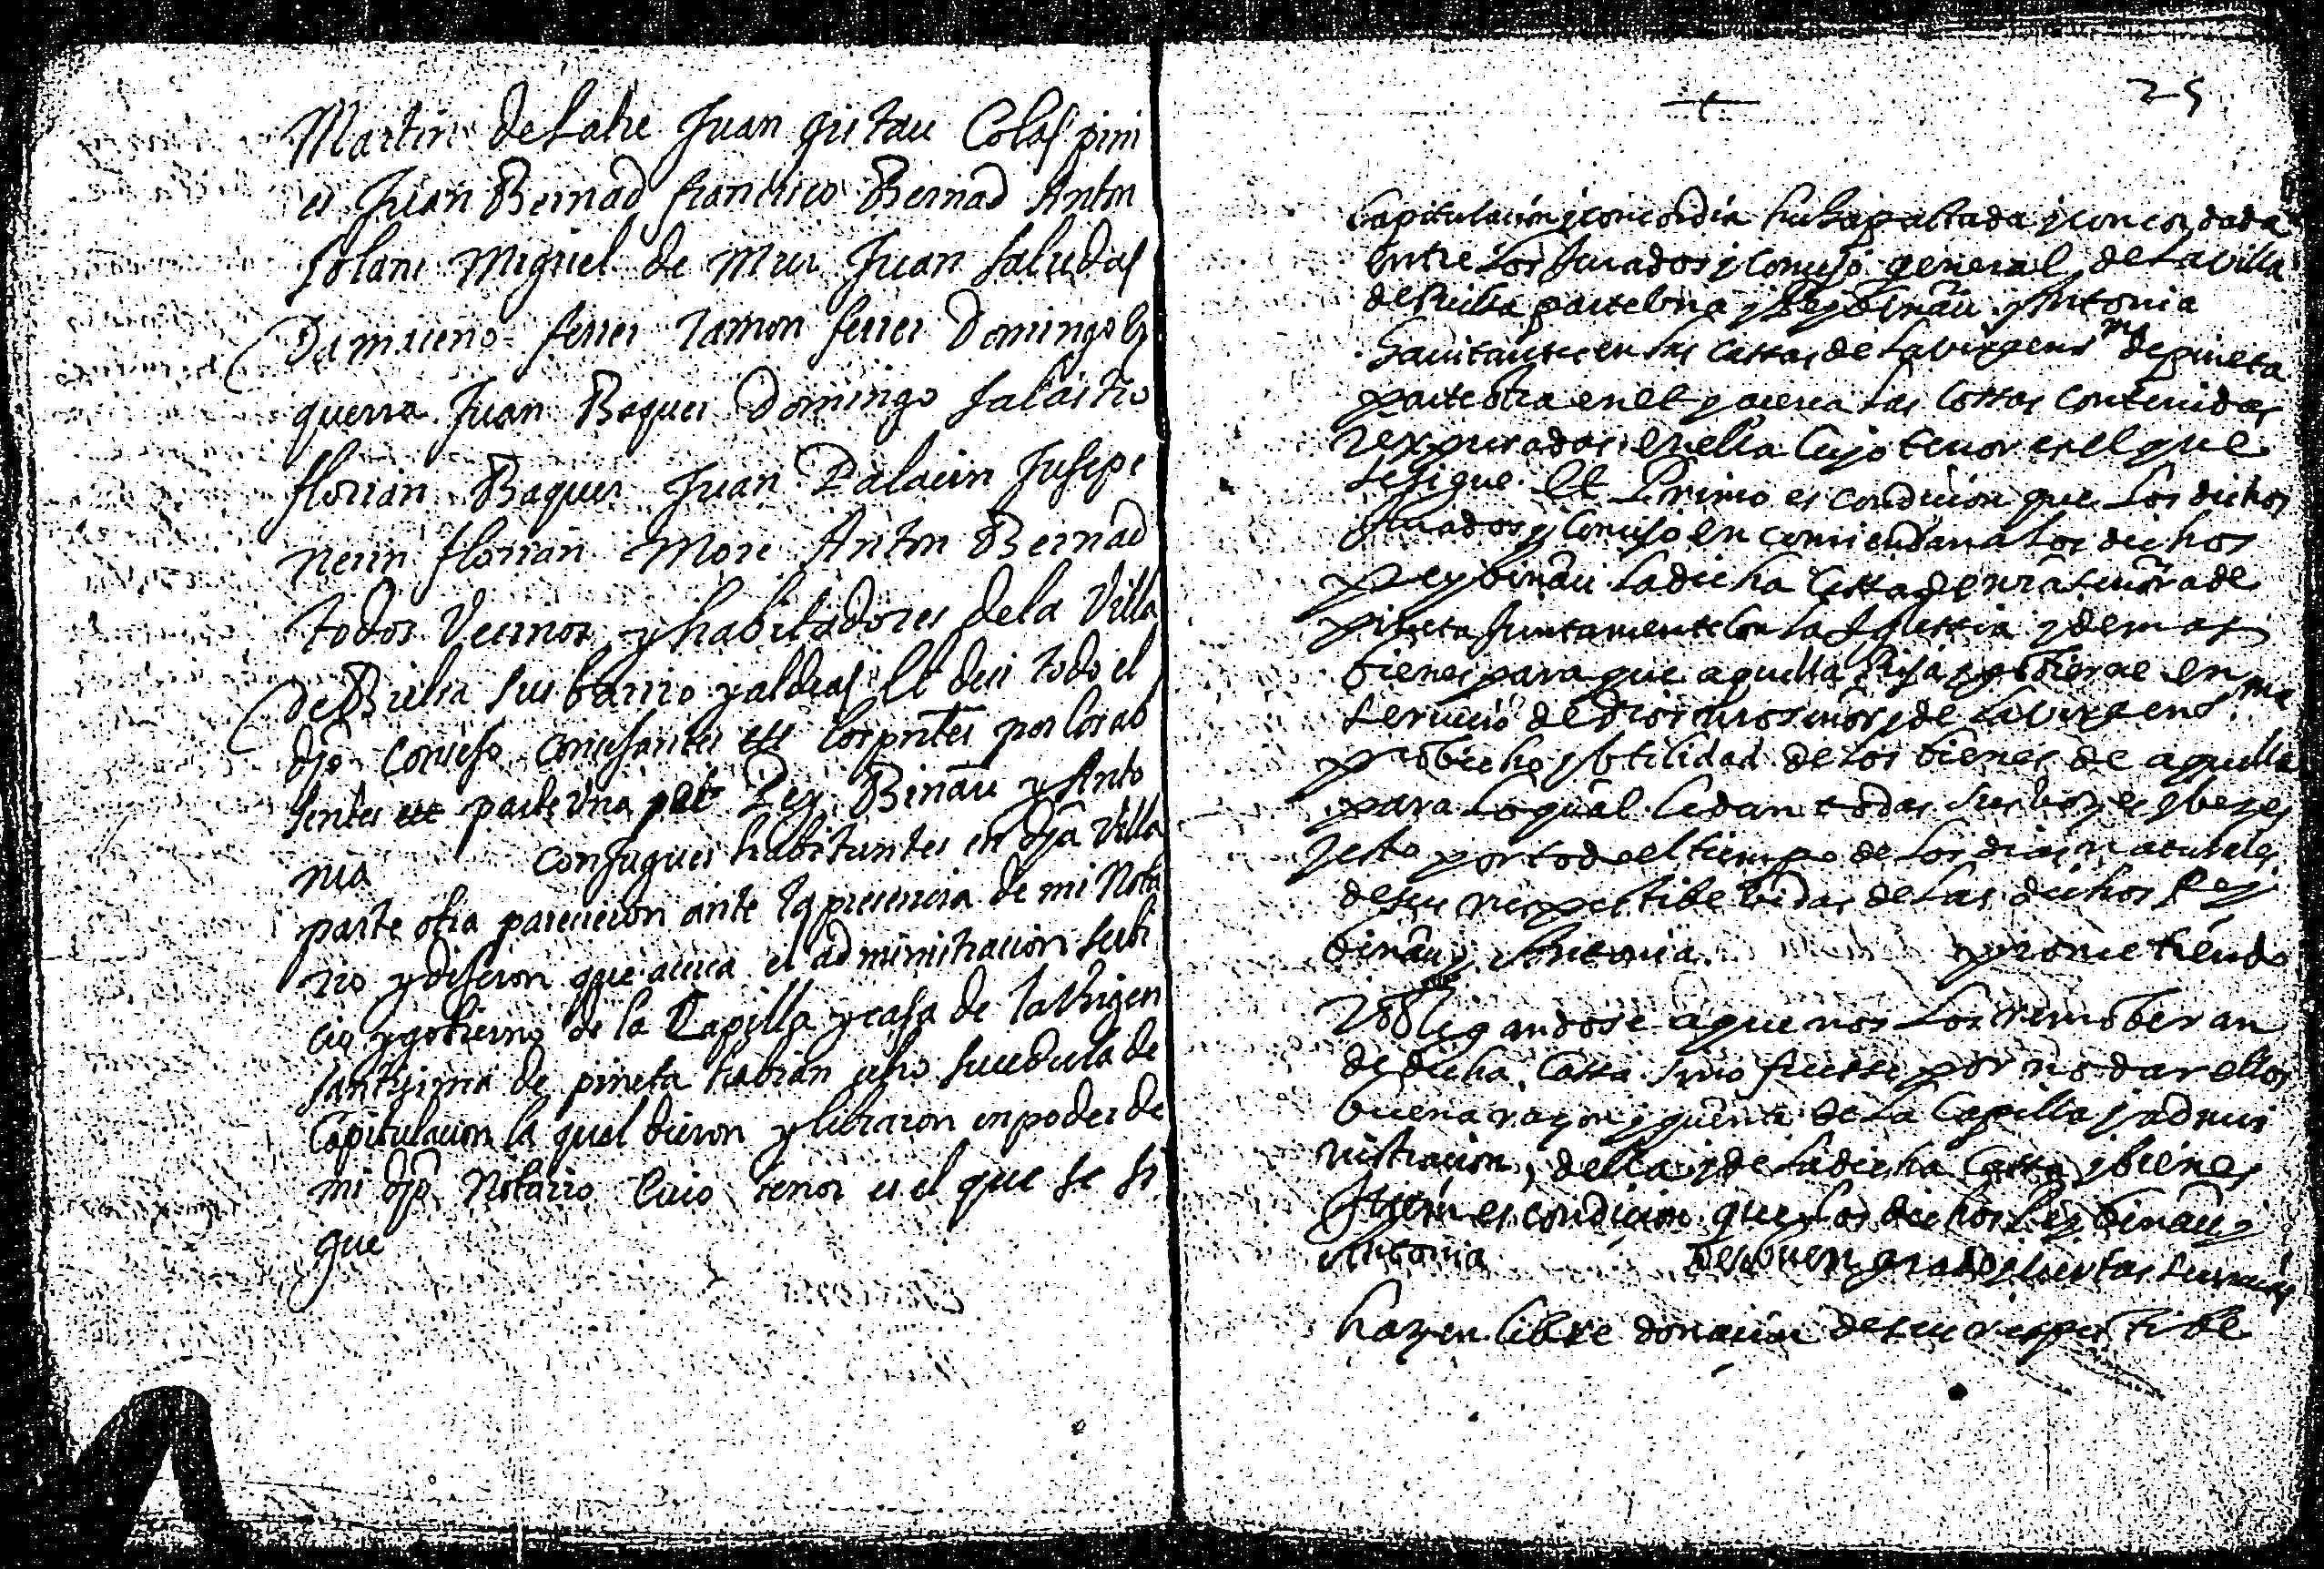 Martin de Latre Juan gistau Colas pini
es Juan Bernad francisco Bernad Anton
solans Miguel de Mur Juan saludas
Dam ferrer Ramon ferrer Domingo
guerra Juan Baquer Domingo
florian Baquer Juan Palacin Jusepe
nerin florian More Anton Bernad
todos Vecinos y habitadores dela Villa
de Bielsa sus barrio y aldeas Et desi todo el
dho Consejo Consejantes los pntes por los ab
sentes parte una Rey Binau y Anto
nia conjugues habitantes en dha Villa
parte otra parecieron ante la presencia de mi Nota
rio y dijeron que acerca el administracion servi
cio y gobierno de la Capilla y casa de la Virgen
santisima de pineta habian echo su cedula de
Capitulacion la qual dieron y libraron en poder de
mi dho Notario cuio tenor es el que se si
gue
25
Capitulacion y concordia pactada y concordada
entre los Jurados y Consejo general de la villa
de bielsa parte una y Rey binau y Antonia
havitantes en las cassas de la virgen sma de pineta
parte otra en et y acerca las cossas contenidas
y expresadas en ella cuyo tenor es el que
se sigue. Et Primo es condicion que los dichos
Jurados y Consejo encomiendan a los dichos
Rey binau la dicha cassa de nra señora de
pineta juntamente con la Iglessia y demas
bienes para que aquella rija y gobierne en
servicio de Dios nro señor y de la virgen sma
probecho y utilidad de los bienes de aquella
para lo qual le dan todas sus bozes y bezes
y esto por todo el tiempo de los dias naturales
de sus respectibe bidas de las dichos Rey
binau y Antonia prometiendo
y obligandose que a que nos los remoberan
de dicha cassa sino fuesse por no dar ellos
buena razon y quenta de la Capilla y admi
nistracion, della y de la dicha Cassa y bienes
Item es condicion que los dichos Rey binau y
Antonia de buen grado y ciertas sciencias
hazen libre donacion de sus respectibe